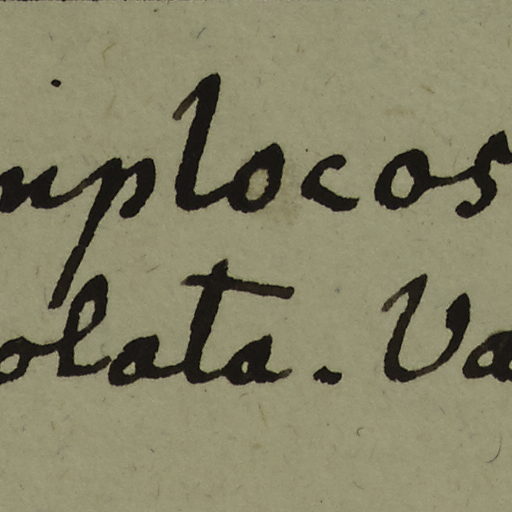 mplocos
olata. Va